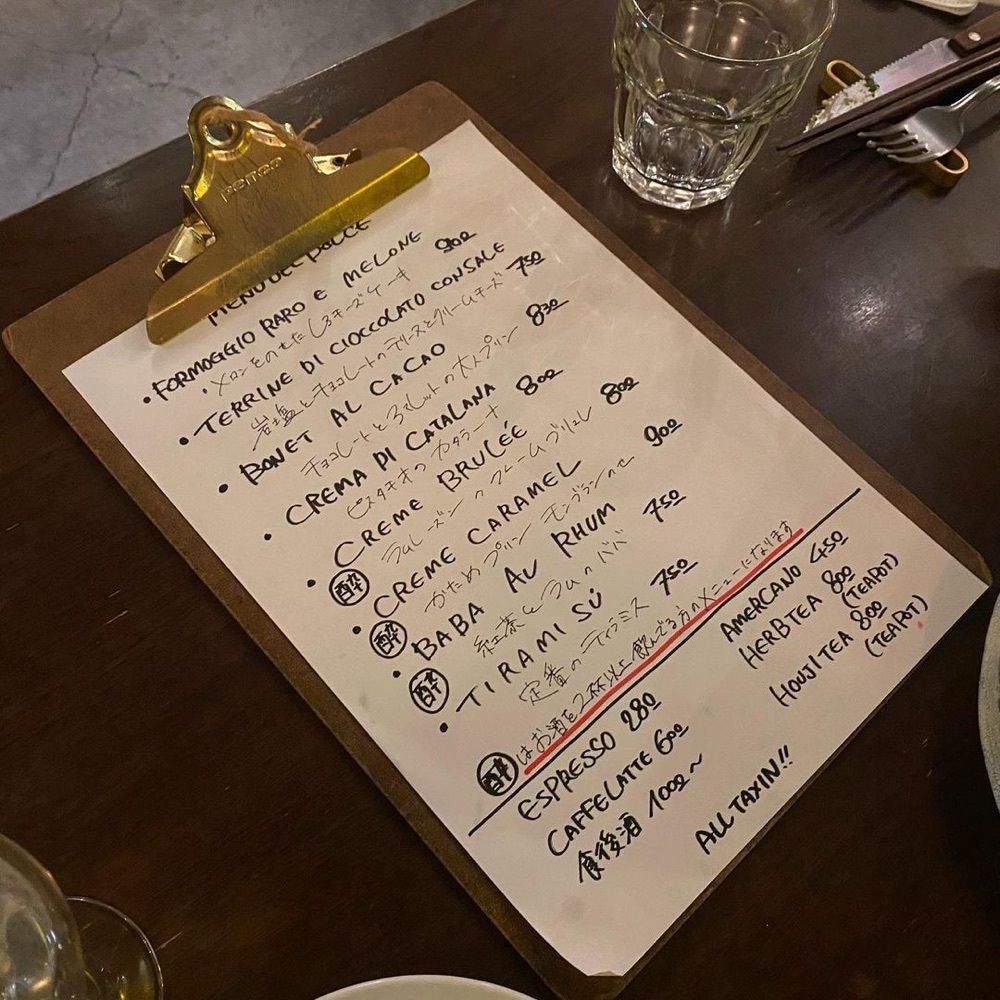 penco
MENU DEL DOLCE
• FORMAGGIO RARO E MELONE 900
・メロンをのせたしろチーズケーキ
• TERRINE DI CIOCCOLATO CONSALE 750
岩塩とチョコレートのテリーヌとクリームチーズ
• BONET AL CACAO 830
チョコレートとアマレットの大人プリン
• CREMA DI CATALANA 800
ピスタチオのカタラーナ
• CREME BRULÉE 800
酔 ラムレーズンのクレームブリュレ
• CREME CARAMEL 900
酔 かためプリン モンブランのせ
• BABA AU RHUM 750
酔 紅茶とラムのババ
• TIRAMI SÚ 750
定番のティラミス
酔 はお酒を2杯以上飲んでる方のメニューになります
ESPRESSO 280
CAFFELATTE 600
食後酒 1000~
AMERCANO 450
HERBTEA 800
(TEAPOT)
HOUJI TEA 800
(TEAPOT)
ALL TAXIN!!